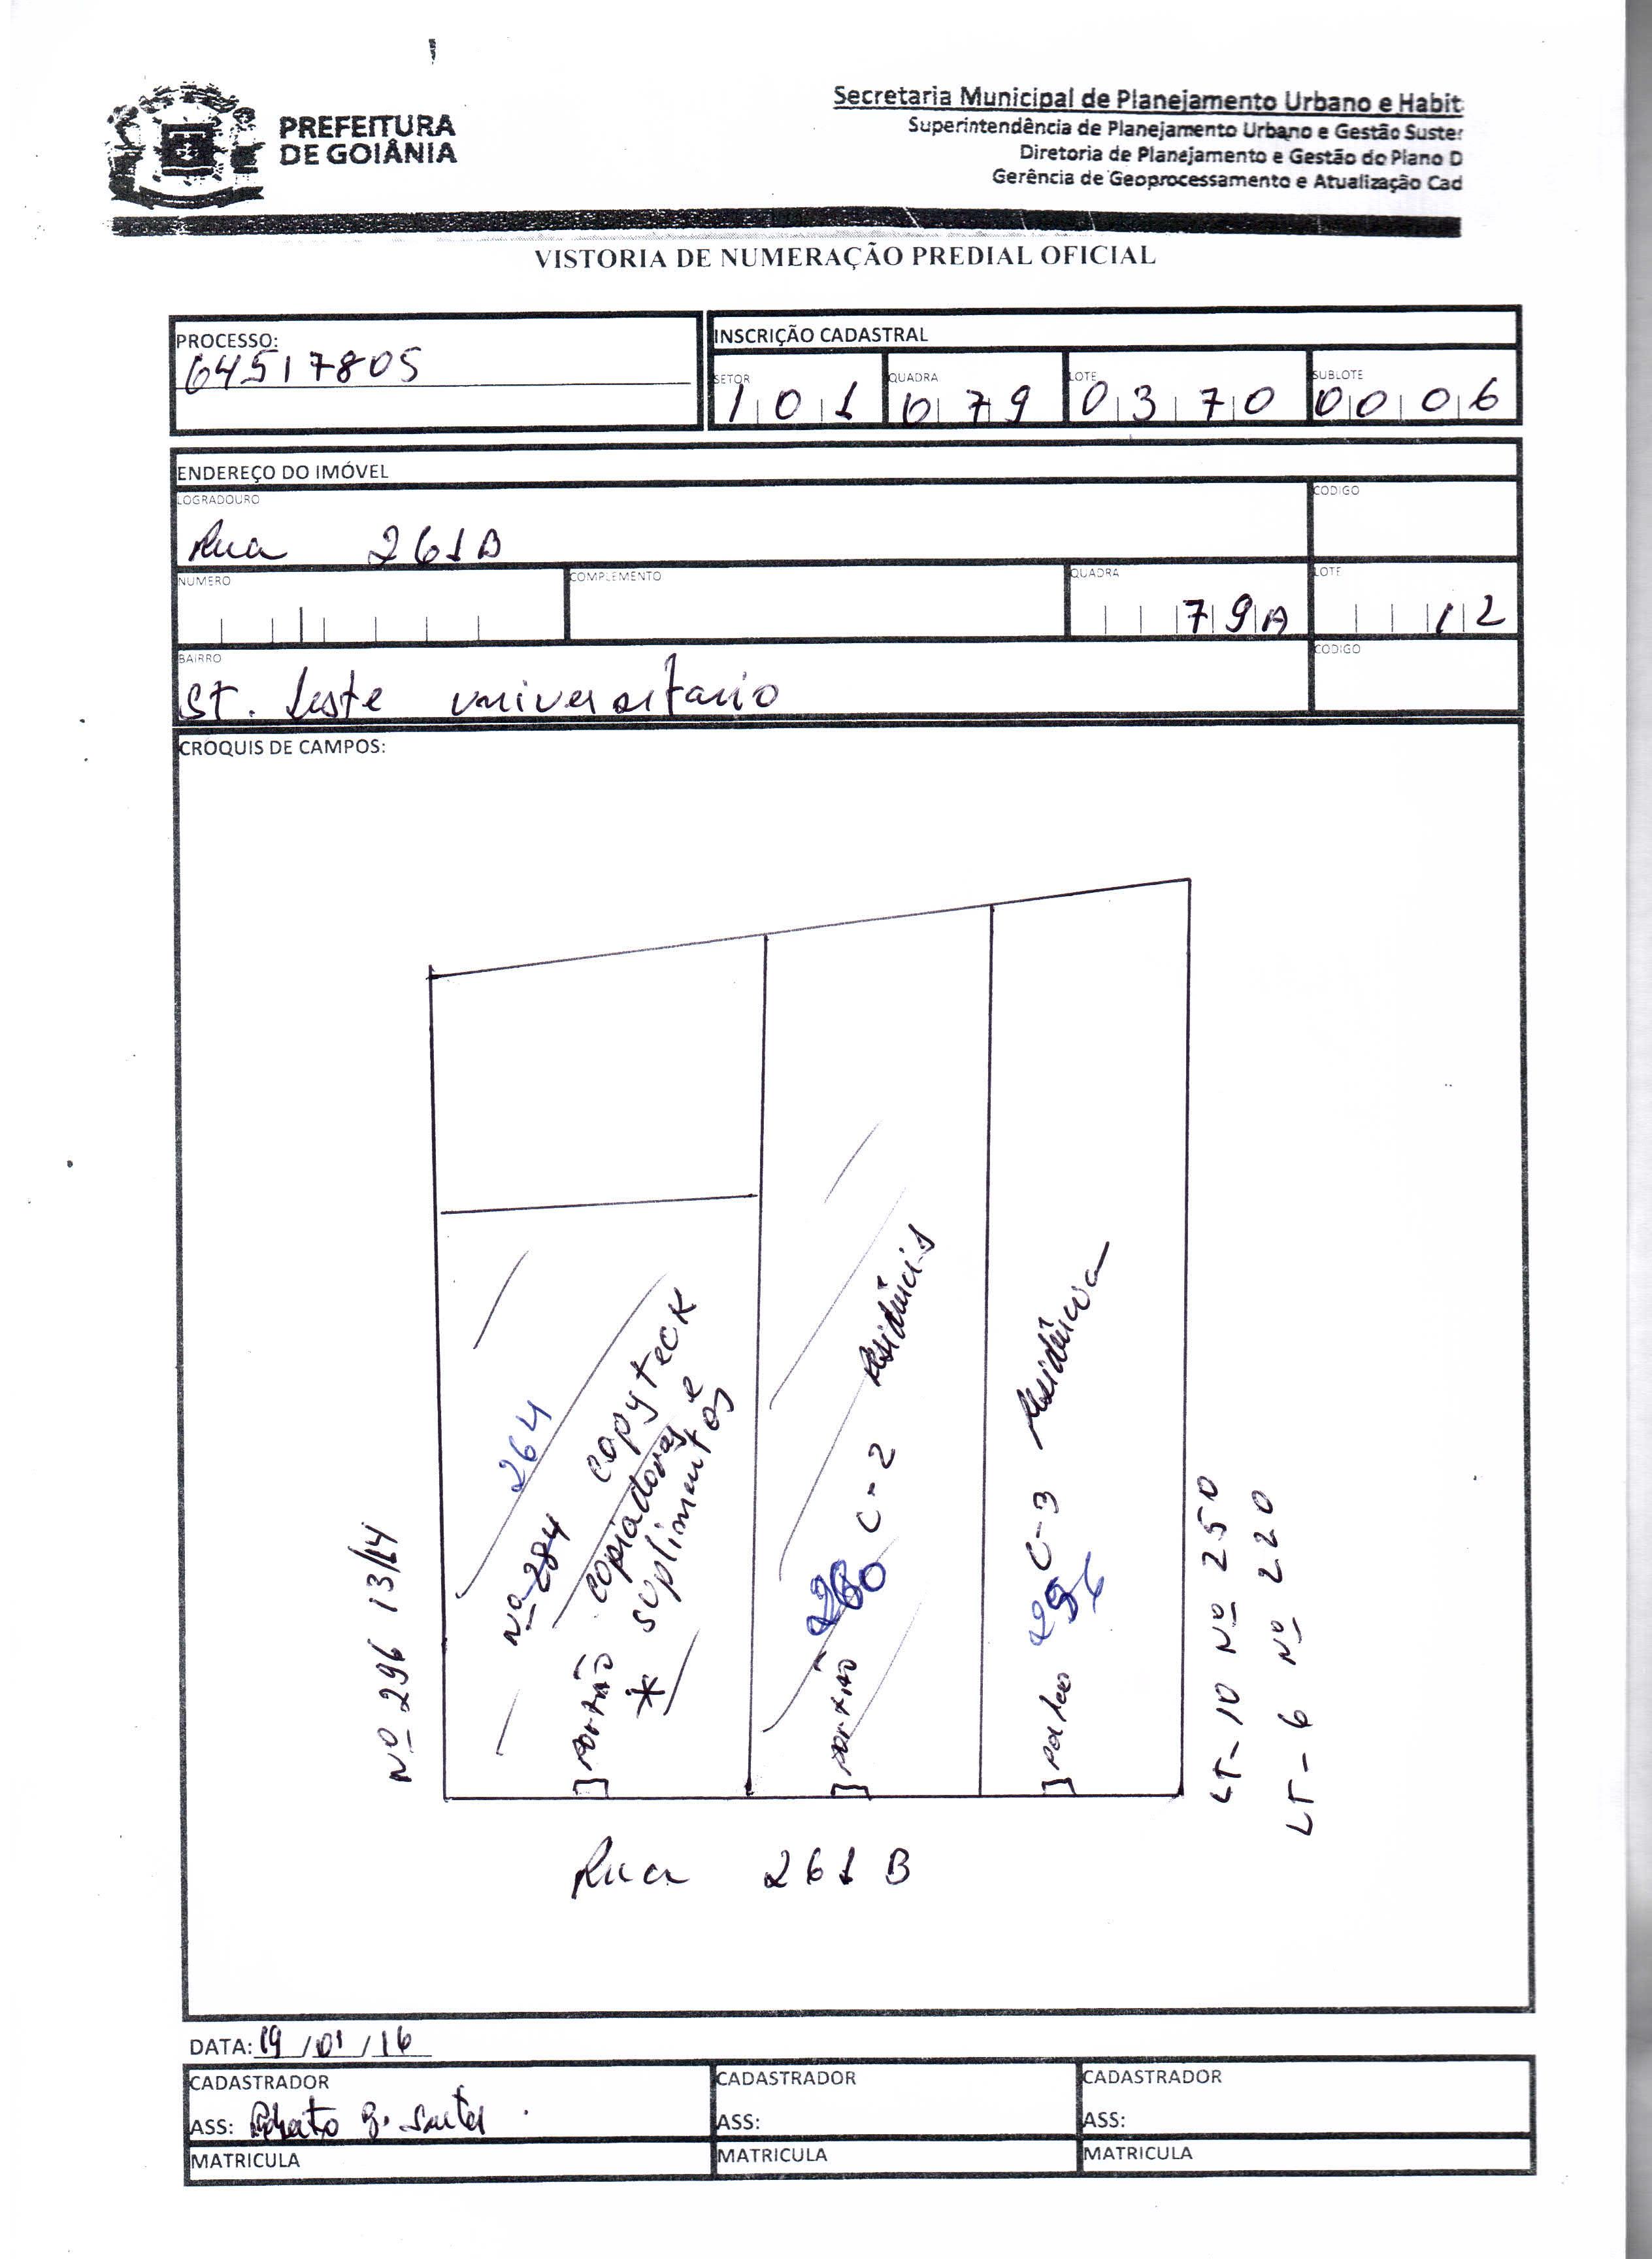 PREFEITURA
DE GOIÂNIA
Secretaria Municipal de Planejamento Urbano e Habit
Superintendência de Planejamento Urbano e Gestão Suste
Diretoria de Planejamento e Gestão do Plano D
Gerência de Geoprocessamento e Atualização Cad
VISTORIA DE NUMERAÇÃO PREDIAL OFICIAL
PROCESSO:
64517805
INSCRIÇÃO CADASTRAL
SETOR
101
QUADRA
079
LOTE
0370
SUBLOTE
0006
ENDEREÇO DO IMÓVEL
LOGRADOURO
Rua 261B
CODIGO
NUMERO
COMPLEMENTO
QUADRA
79A
LOTE
12
BAIRRO
St. Leste universitario
CODIGO
CROQUIS DE CAMPOS:
Nº 296 13/14
264
Nº 284 copyteck
copiadoras e
suplimentos
*
portão
260 C-2 Residência
portão
C-3 Residência
portão
LT-10 Nº 250
LT-6 Nº 220
Rua 261 B
DATA: 19/01/16
CADASTRADOR
ASS:
MATRICULA
CADASTRADOR
ASS:
MATRICULA
CADASTRADOR
ASS:
MATRICULA